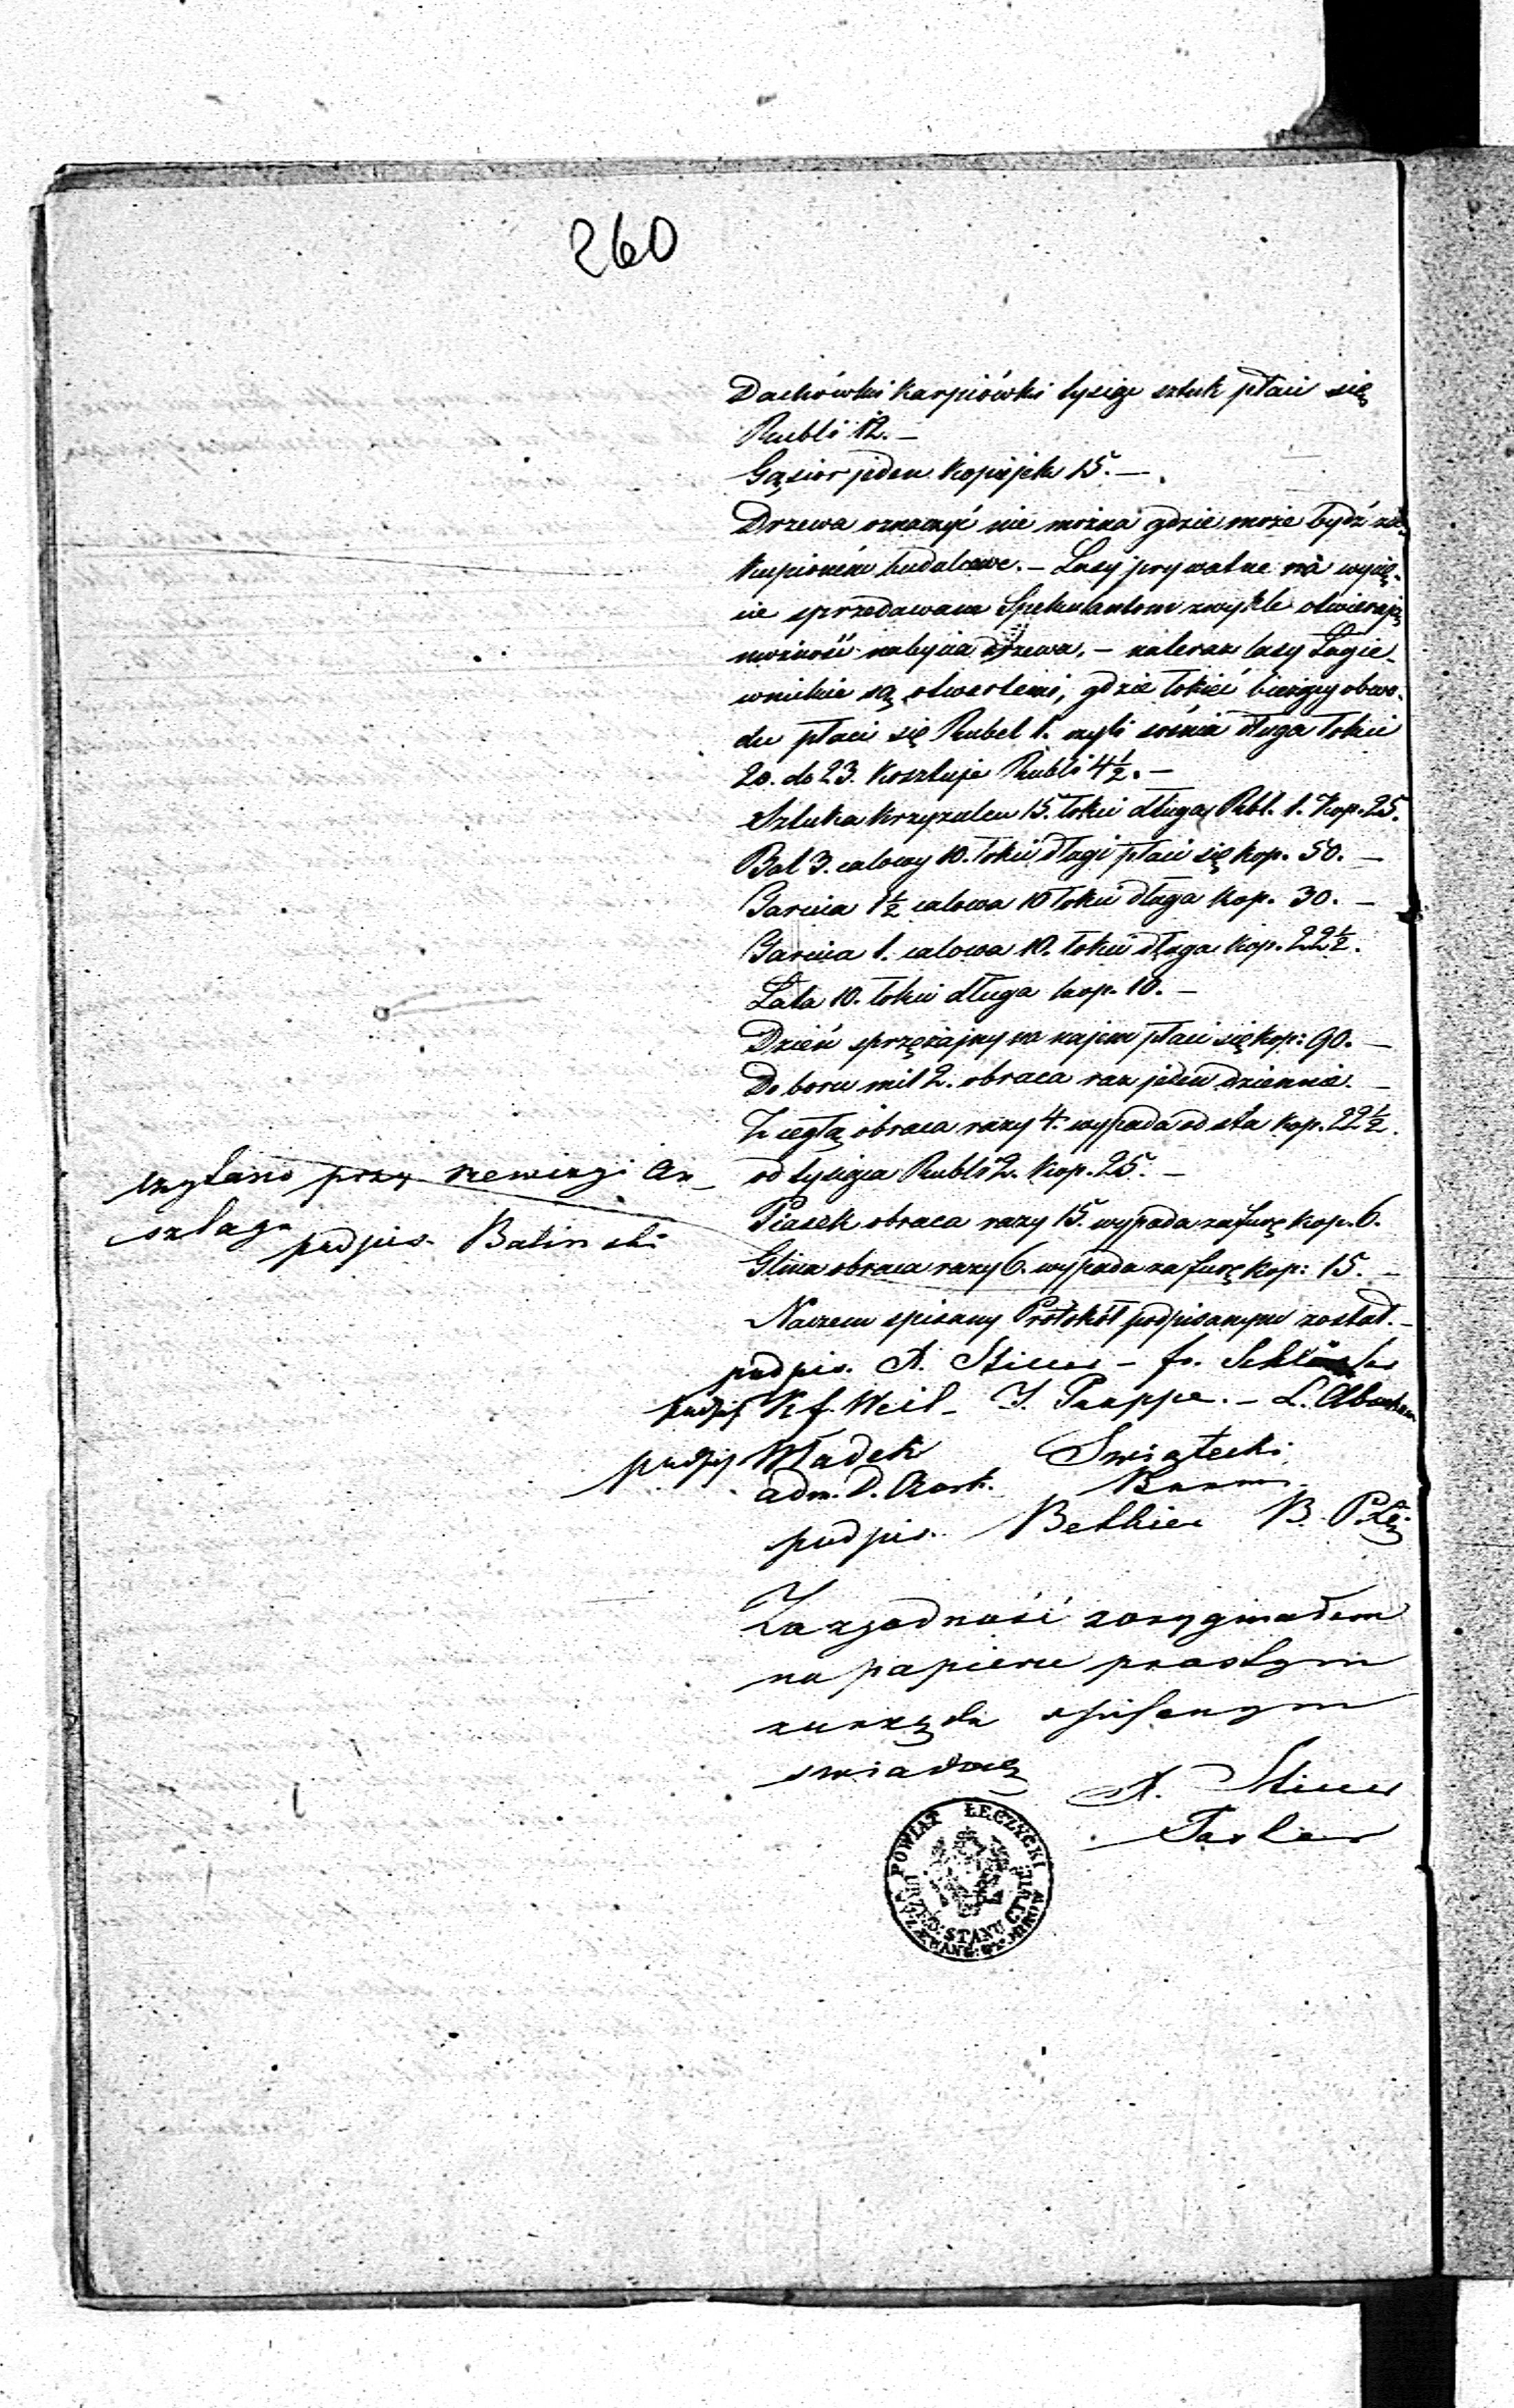 260
Dachówki karpiówki tysiąc sztuk płaci się
Rubli 12. –
Gąsior jeden kopiejek 15. –
Drzewa oznaczyć nie można gdzie może bydź za-
kupioném budulcowe. – Lasy prywatne na wycię-
cie sprzedawane Spekulantom zwykle otwierają
możność nabycia drzewa. – na teraz lasy Łagie-
wnickie są otwartemi, gdzie łokieć bieżący obwo-
du płaci się Rubel 1. czyli sośnia długa łokci
20. do 23. kosztuje Rubli 4½. –
Sztuka krzyzulcu 15. łokci długa Rbl. 1. kop. 25.
Bal 3. calowy 10. łokci długi płaci się kop. 50. –
Tarcica 1½ calowa 10 łokci długa kop. 30. –
Tarcica 1. calowa 10. łokci długa kop. 22½.
Łata 10. łokci długa kop. 10. –
Dzień sprzężajny na najem płaci się kop: 90. –
Do boru mil 2. obraca raz jeden dziennie. –
Z cegłą obraca razy 4. wypada od sta kop. 22½.
od tysiąca Rubli 2. kop. 25. –
Piasek obraca razy 15. wypada za furę kop. 6.
Glina obraca razy 6. wypada za furę kop: 15. –
Na czem spisany Protokół podpisanym został. –
czytano przy rewizyi An-
szlagu
podpis. Baliński
podpis. A. Stiller – fr.
podpis K f. Weil – J. Pruppe. – L.
podpis Władek Swiątecki
adm. D.
podpis. Bethier B.
Za zgodność z oryginałem
na papierze prostym
z urzędu spisanym
świadczę
A. Stiller
POWIAT ŁĘCZYCKI
URZĘD: STANU CYWIL:
WYZ. EWANG: GM.